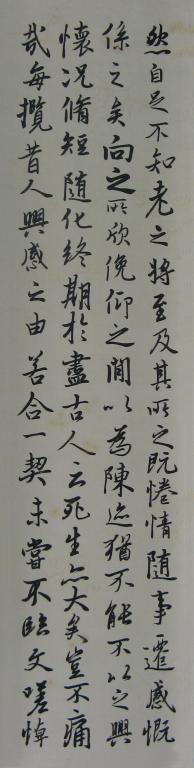 然自足不知老之將至及其所之既惓情隨事遷感慨
係之矣向之所欣俛仰之閒以為陳迹猶不能不以之興
懷況脩短隨化終期於盡古人云死生亦大矣豈不痛
哉每攬昔人興感之由若合一契未嘗不臨文嗟悼